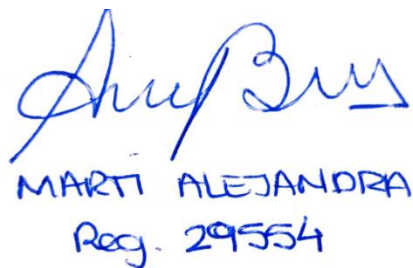 MARTI ALEJANDRA
Reg. 29554